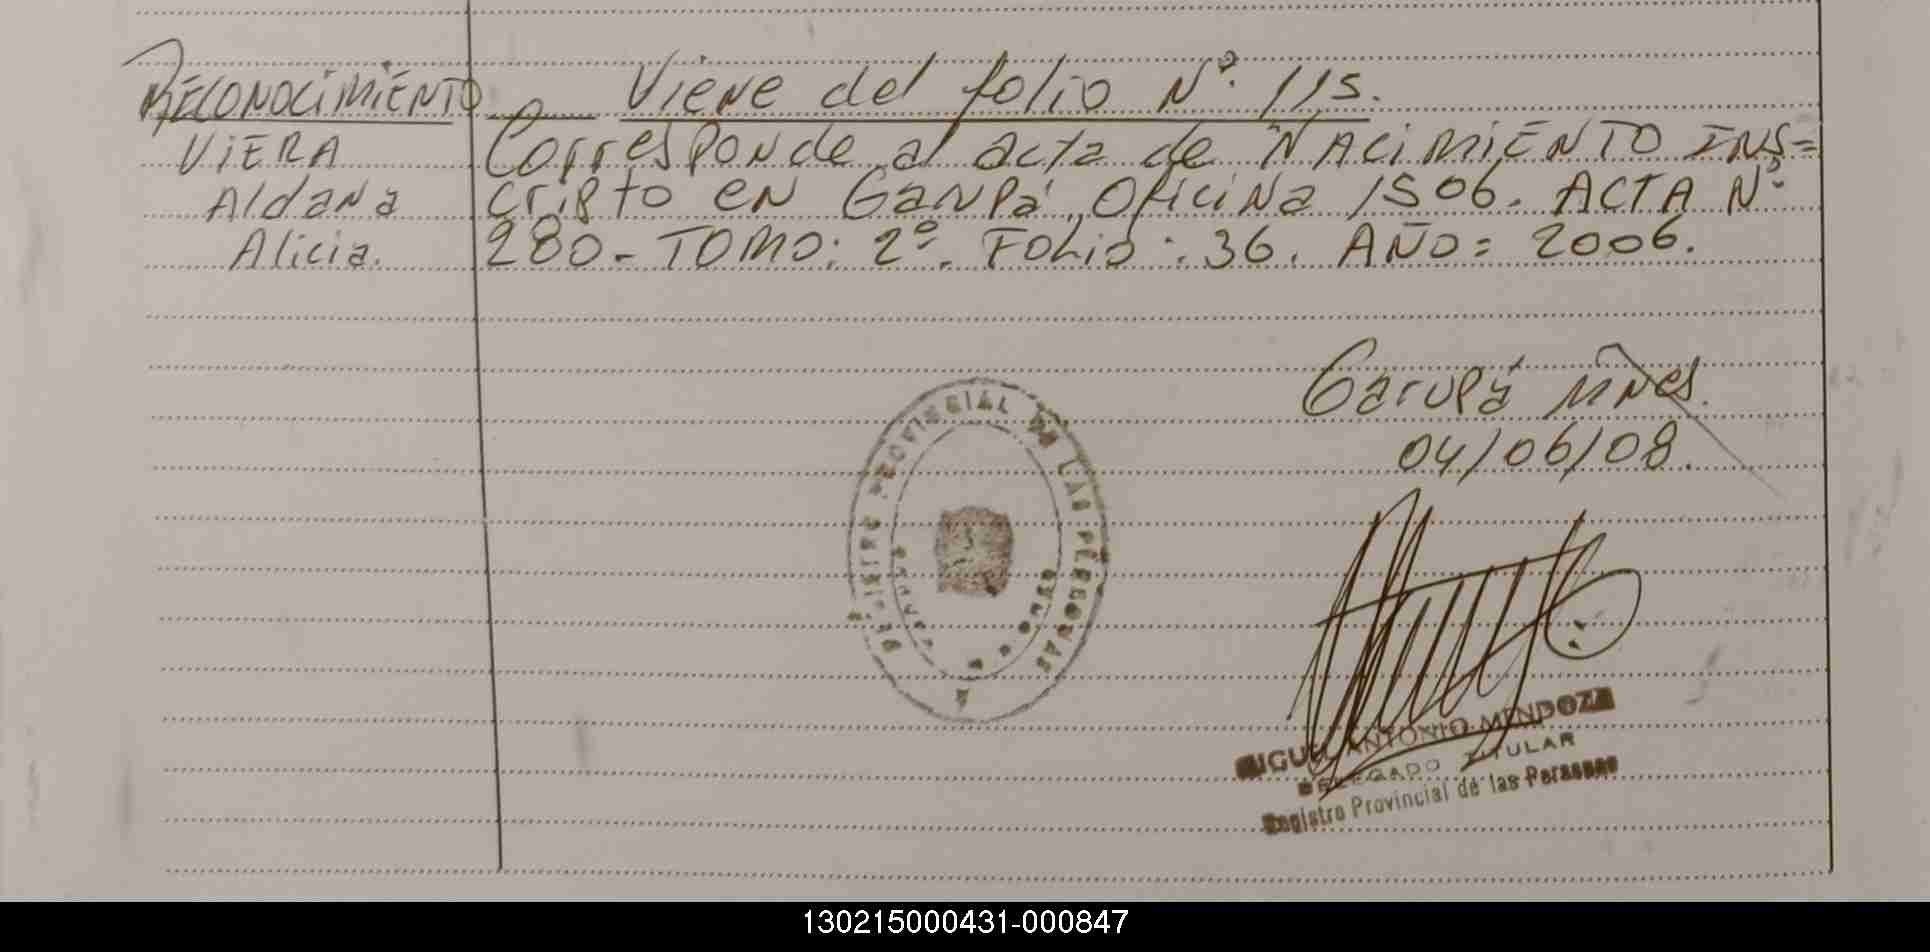 RECONOCIMIENTO
VIERA
Aldana
Alicia.
Viene del folio N°. 115.
Corresponde al acta de NACIMIENTO INS=
cripto en Garupá, Oficina 1506. ACTA N°.
280- TOMO: 2°. FOLIO: 36. AÑO: 2006.
Garupá Mnes.
04/06/08.
REGISTRO PROVINCIAL DE LAS PERSONAS
MIGUEL ANTONIO MENDOZA
DELEGADO TITULAR
Registro Provincial de las Personas
130215000431-000847